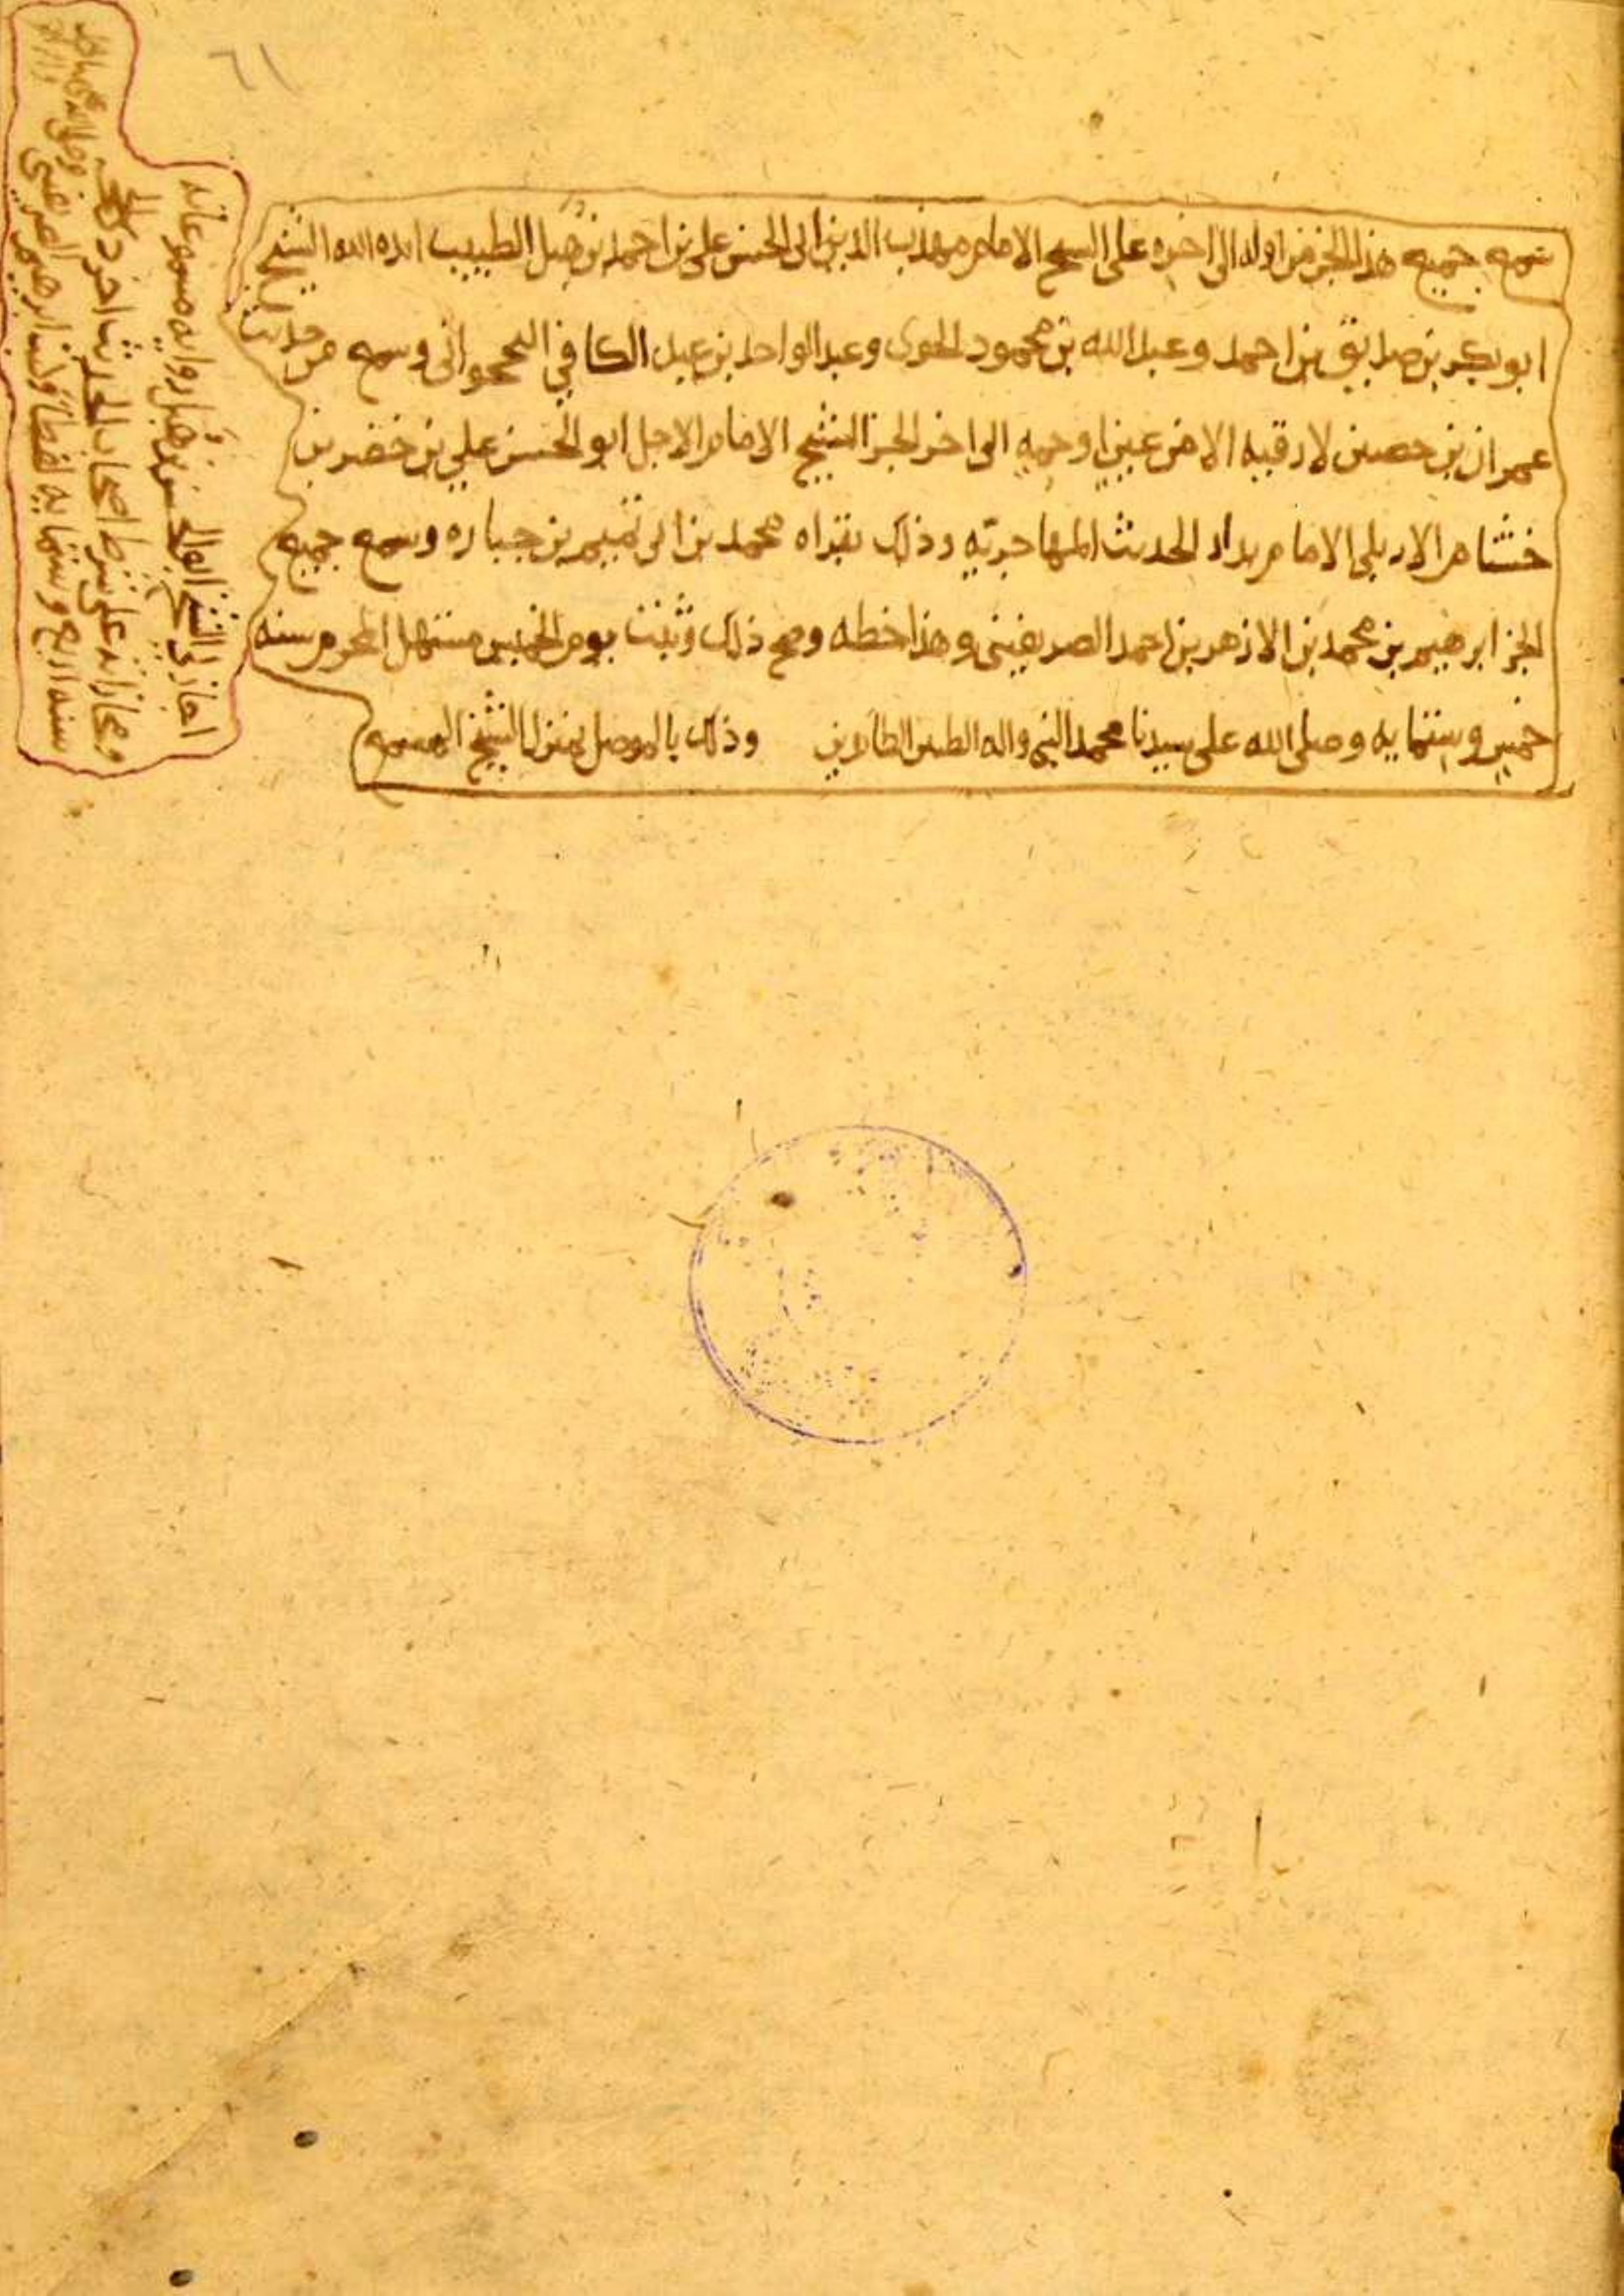 ٦١
سمع جميع هذا الجز من اوله الى اخره على الشيخ الامام مهذب الدين ابى الحسن على بن احمد بن هبل الطبيب ايده الله الشيخ
ابو بكر بن صديق بن احمد وعبد الله بن محمود الخوى وعبد الواحد بن عبد الكافي النحجوانى وسمع من حديث
عمران بن حصين لا رقيه الا من عين او حمه الى اخر الجز الشيخ الامام الاجل ابو الحسن علي بن خضر بن
خشنام الاربلى الامام بدار الحديث المهاجريه وذلك بقراه محمد بن ابى تميم بن جباره وسمع جميع
الجز ابرهيم بن محمد بن الازهر بن احمد الصريفينى وهذا خطه وصح ذلك وثبت يوم الخميس مستهل المحرم سنه
خمس وستمايه وصلى الله على سيدنا محمد النبى واله الطيبين الطاهرين وذلك بالموصل بمنزل الشيخ المسمع
اجاز لى الشيخ ابو الحسن بن هبل روايه مسموعاته
ومجازاته على شرط اصحاب الحديث اخر ذى الحجه
سنه اربع وستمايه لفظا وكتب ابرهيم الصريفينى